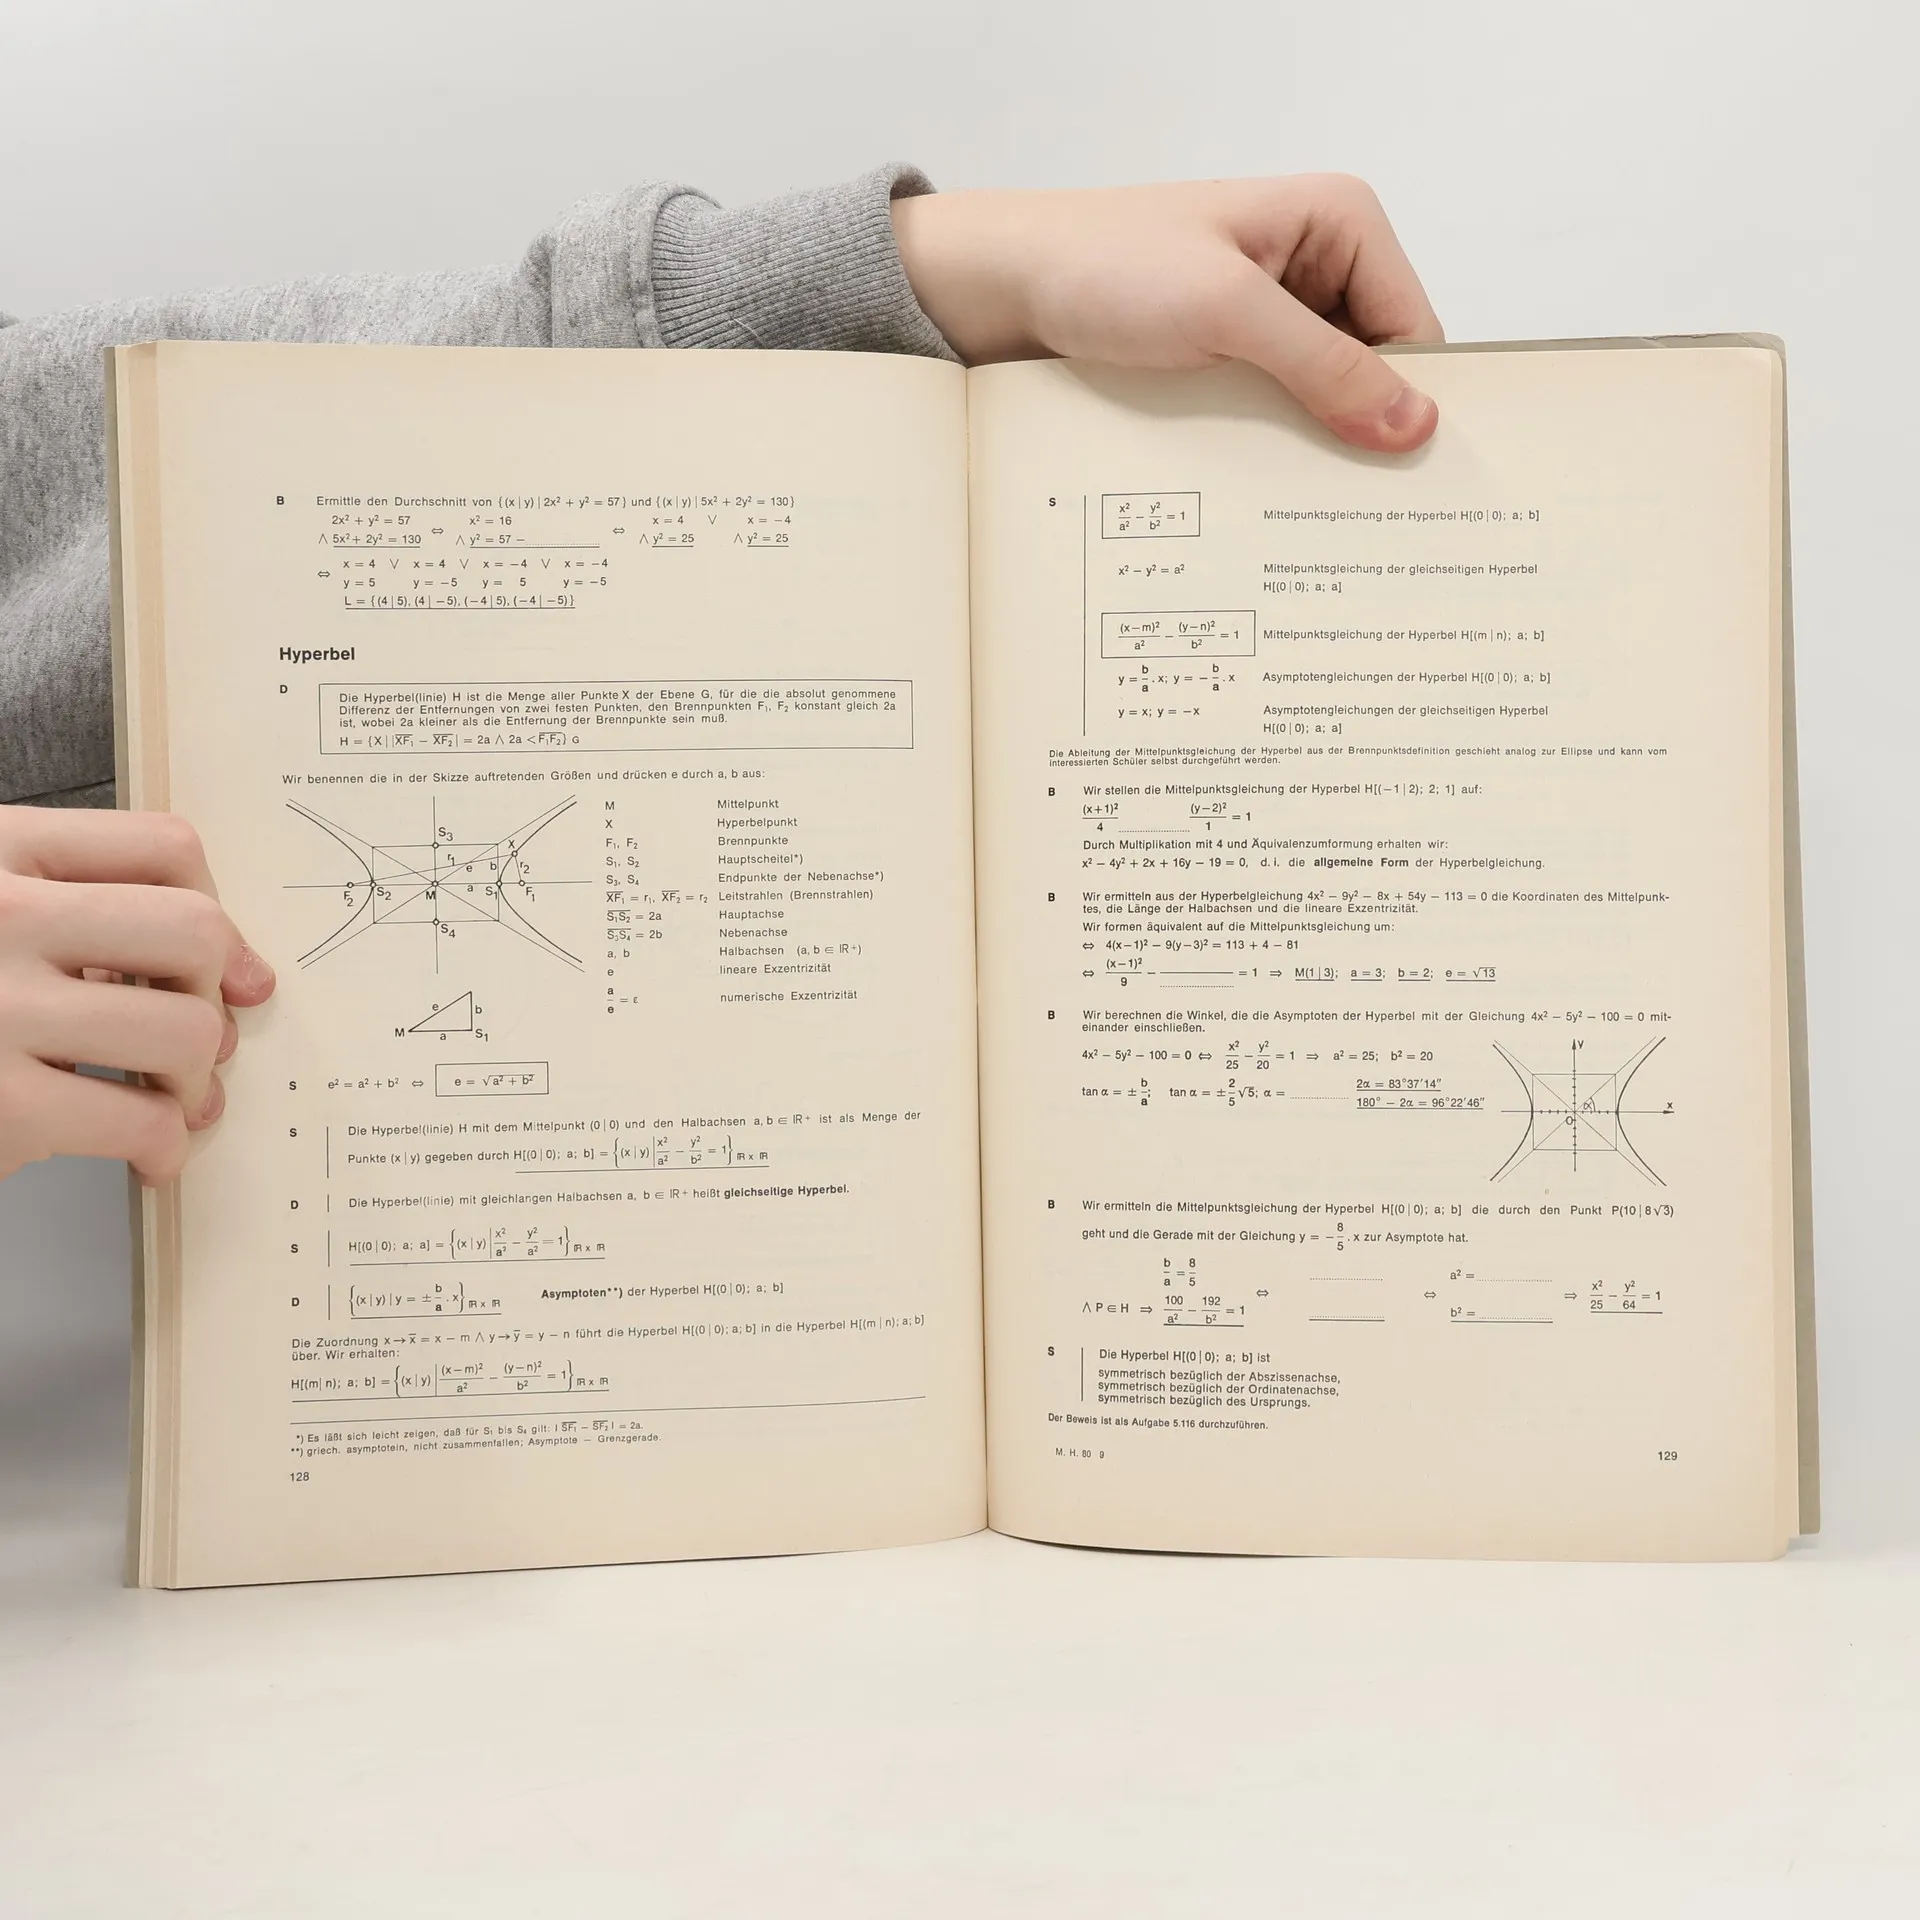 B Ermittle den Durchschnitt von {(x | y) | 2x² + y² = 57} und {(x | y) | 5x² + 2y² = 130}
2x² + y² = 57 ⇔ x² = 16 ⇔ x = 4 ∨ x = −4
∧ 5x² + 2y² = 130 ∧ y² = 57 − ............ ∧ y² = 25 ∧ y² = 25
⇔ x = 4 ∨ x = 4 ∨ x = −4 ∨ x = −4
y = 5 y = −5 y = 5 y = −5
L = {(4 | 5), (4 | −5), (−4 | 5), (−4 | −5)}
Hyperbel
D Die Hyperbel(linie) H ist die Menge aller Punkte X der Ebene G, für die die absolut genommene
Differenz der Entfernungen von zwei festen Punkten, den Brennpunkten F₁, F₂ konstant gleich 2a
ist, wobei 2a kleiner als die Entfernung der Brennpunkte sein muß.
H = {X | |X̅F̅₁ − X̅F̅₂| = 2a ∧ 2a < F̅₁F̅₂} G
Wir benennen die in der Skizze auftretenden Größen und drücken e durch a, b aus:
S₃
X
r₁ e b r₂
F₂ S₂ M a S₁ F₁
S₄
M Mittelpunkt
X Hyperbelpunkt
F₁, F₂ Brennpunkte
S₁, S₂ Hauptscheitel*)
S₃, S₄ Endpunkte der Nebenachse*)
X̅F̅₁ = r₁, X̅F̅₂ = r₂ Leitstrahlen (Brennstrahlen)
S̅₁S̅₂ = 2a Hauptachse
S̅₃S̅₄ = 2b Nebenachse
a, b Halbachsen (a, b ∈ ℝ⁺)
e lineare Exzentrizität
a/e = ε numerische Exzentrizität
e b
M a S₁
S e² = a² + b² ⇔ e = √(a² + b²)
S Die Hyperbel(linie) H mit dem Mittelpunkt (0 | 0) und den Halbachsen a, b ∈ ℝ⁺ ist als Menge der
Punkte (x | y) gegeben durch H[(0 | 0); a; b] = {(x | y) | x²/a² − y²/b² = 1} ℝ x ℝ
D Die Hyperbel(linie) mit gleichlangen Halbachsen a, b ∈ ℝ⁺ heißt gleichseitige Hyperbel.
S H[(0 | 0); a; a] = {(x | y) | x²/a² − y²/a² = 1} ℝ x ℝ
D {(x | y) | y = ± b/a . x} ℝ x ℝ Asymptoten**) der Hyperbel H[(0 | 0); a; b]
Die Zuordnung x → x̅ = x − m ∧ y → y̅ = y − n führt die Hyperbel H[(0 | 0); a; b] in die Hyperbel H[(m | n); a; b]
über. Wir erhalten:
H[(m | n); a; b] = {(x | y) | (x−m)²/a² − (y−n)²/b² = 1} ℝ x ℝ
*) Es läßt sich leicht zeigen, daß für S₁ bis S₄ gilt: | S̅F̅₁ − S̅F̅₂ | = 2a.
**) griech. asymptotein, nicht zusammenfallen; Asymptote − Grenzgerade.
128
S x²/a² − y²/b² = 1 Mittelpunktsgleichung der Hyperbel H[(0 | 0); a; b]
x² − y² = a² Mittelpunktsgleichung der gleichseitigen Hyperbel
H[(0 | 0); a; a]
(x−m)²/a² − (y−n)²/b² = 1 Mittelpunktsgleichung der Hyperbel H[(m | n); a; b]
y = b/a . x; y = − b/a . x Asymptotengleichungen der Hyperbel H[(0 | 0); a; b]
y = x; y = −x Asymptotengleichungen der gleichseitigen Hyperbel
H[(0 | 0); a; a]
Die Ableitung der Mittelpunktsgleichung der Hyperbel aus der Brennpunktsdefinition geschieht analog zur Ellipse und kann vom
interessierten Schüler selbst durchgeführt werden.
B Wir stellen die Mittelpunktsgleichung der Hyperbel H[(−1 | 2); 2; 1] auf:
(x+1)²/4 ............ (y−2)²/1 = 1
Durch Multiplikation mit 4 und Äquivalenzumformung erhalten wir:
x² − 4y² + 2x + 16y − 19 = 0, d. i. die allgemeine Form der Hyperbelgleichung.
B Wir ermitteln aus der Hyperbelgleichung 4x² − 9y² − 8x + 54y − 113 = 0 die Koordinaten des Mittelpunk-
tes, die Länge der Halbachsen und die lineare Exzentrizität.
Wir formen äquivalent auf die Mittelpunktsgleichung um:
⇔ 4(x−1)² − 9(y−3)² = 113 + 4 − 81
⇔ (x−1)²/9 − ............ = 1 ⇒ M(1 | 3); a = 3; b = 2; e = √13
B Wir berechnen die Winkel, die die Asymptoten der Hyperbel mit der Gleichung 4x² − 5y² − 100 = 0 mit-
einander einschließen.
4x² − 5y² − 100 = 0 ⇔ x²/25 − y²/20 = 1 ⇒ a² = 25; b² = 20
tan α = ± b/a; tan α = ± 2/5 √5; α = ............ 2α = 83°37′14″
180° − 2α = 96°22′46″
y
α x
O
B Wir ermitteln die Mittelpunktsgleichung der Hyperbel H[(0 | 0); a; b] die durch den Punkt P(10 | 8√3)
geht und die Gerade mit der Gleichung y = − 8/5 . x zur Asymptote hat.
b/a = 8/5 ⇔ ............ ⇔ a² = ............ ⇒ x²/25 − y²/64 = 1
∧ P ∈ H ⇒ 100/a² − 192/b² = 1 ............ b² = ............
S Die Hyperbel H[(0 | 0); a; b] ist
symmetrisch bezüglich der Abszissenachse,
symmetrisch bezüglich der Ordinatenachse,
symmetrisch bezüglich des Ursprungs.
Der Beweis ist als Aufgabe 5.116 durchzuführen.
M. H. 80 9
129